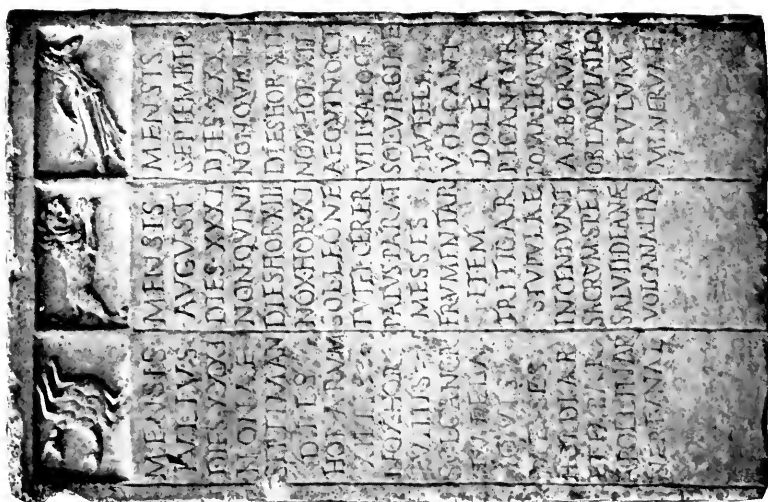 MENSIS
IVLIVS
DIES XXXI
NONAE
SEPTIMAN
DIES
HORARVM
NOX HOR
VIIII S
SOL CANCR
TVTELA
IOVIS
MESSES
HORDIAR
APOLLINAR
NEPTVNAL
MENSIS
AVGVST
DIES XXXI
NON QVINT
DIES HOR XIII
NOX HOR XI
SOL LEONE
TVTEL CERER
PALVS PARAT
MESSES
FRVMENTAR
ITEM
TRITICAR
STVPVLAE
INCENDVNT
SACRVM SPEI
SALVTI DIANE
VOLCANALIA
MENSIS
SEPTEMBR
DIES XXX
NON QVINT
DIES HOR XII
NOX HOR XII
AEQVINOCT
VIII KAL OCT
SOL VIRGINE
TVTELA
VOLCANI
DOLEA
PICANTVR
POMA LEGVNT
ARBORVM
OBLAQVIATIO
EPVLVM
MINERVAE